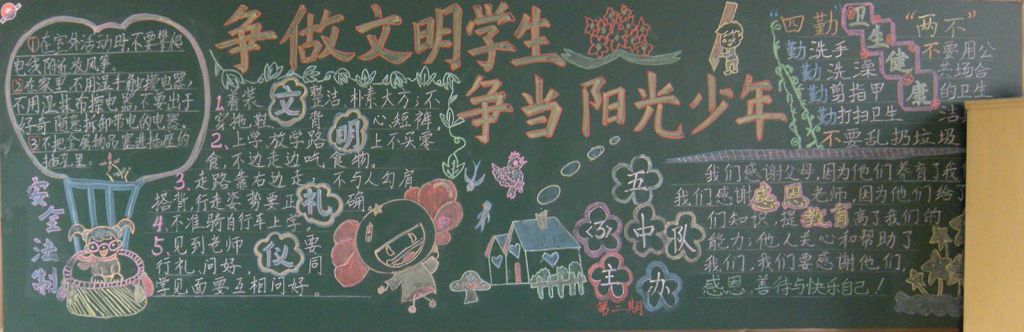 争做文明学生
争当阳光少年
①在室外活动毋不要攀爬
电线附近放风筝。
②在家里,不用湿手触摸电器,
不用湿抹布擦电器,不要出于
好奇随意拆卸带电的电器,
③不把金属物品塞进插座的
插孔里。
安全法制
文明礼仪
1、着装整洁,朴素大方;不
穿拖鞋、背心短裤,
2、上学、放学路上不买零
食,不边走边吃食物,
3、走路靠右边走,不与人勾肩
搭背,行走姿势要正确。
4、不准骑自行车上学,
5、见到老师要
行礼,问好,同
学见面要互相问好。
五(5)中队
主办
第二期
卫生健康
“四勤”
勤洗手
勤洗澡
勤剪指甲
勤打扫卫生
“两不”
不要用公
共场合
的卫生
洁具
不要乱扔垃圾
感恩教育
我们感谢父母,因为他们养育了我
我们感谢老师,因为他们给了
们知识,提高了我们的
能力;他人关心和帮助了
我们,我们要感谢他们,
感恩、善待与快乐自己!